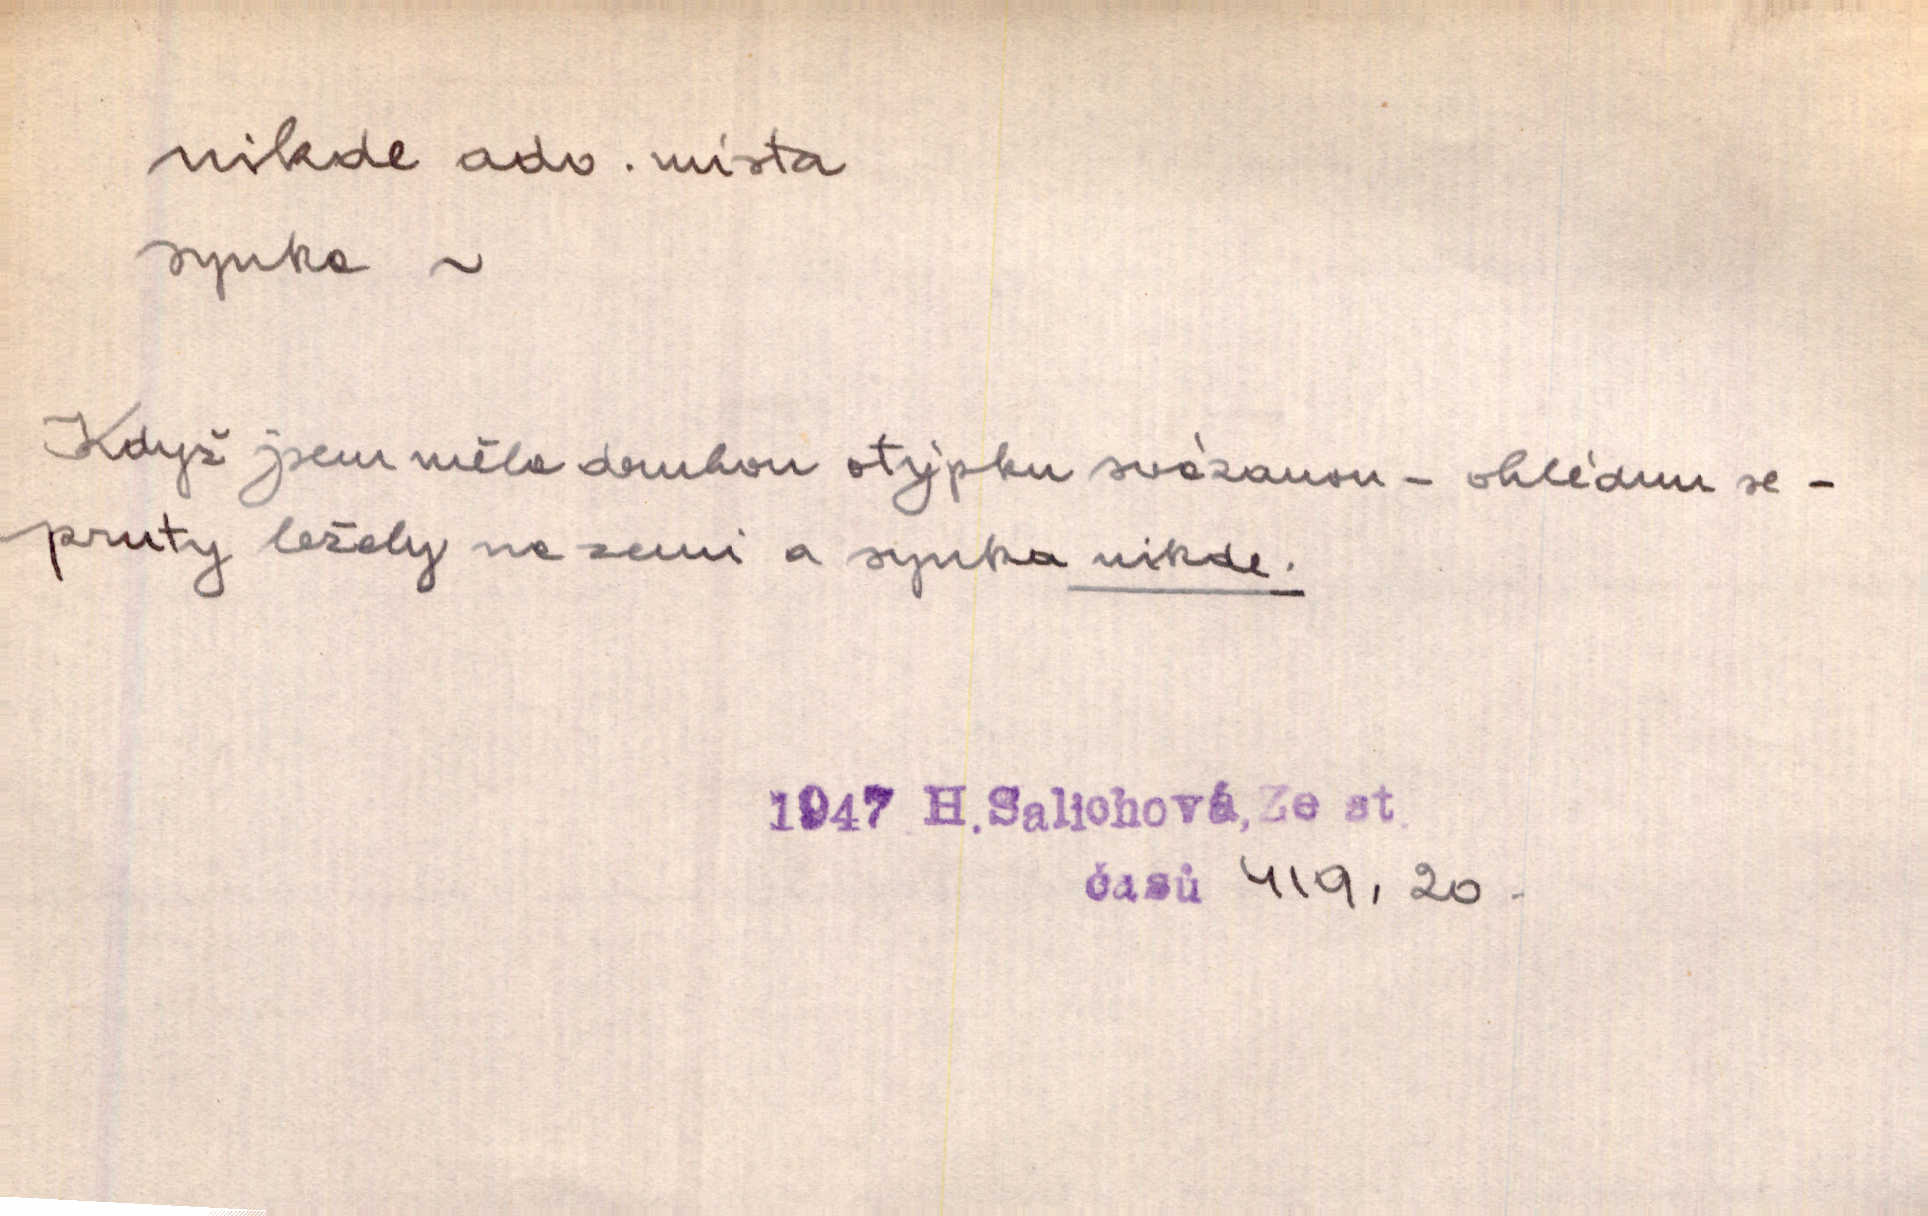 nikde adv. místa
synka ~
Když jsem měla druhou otýpku svázanou – ohlédnu se –
pruty ležely na zemi a synka nikde.
1947 H. Salichová, Ze st.
časů 419, 20.